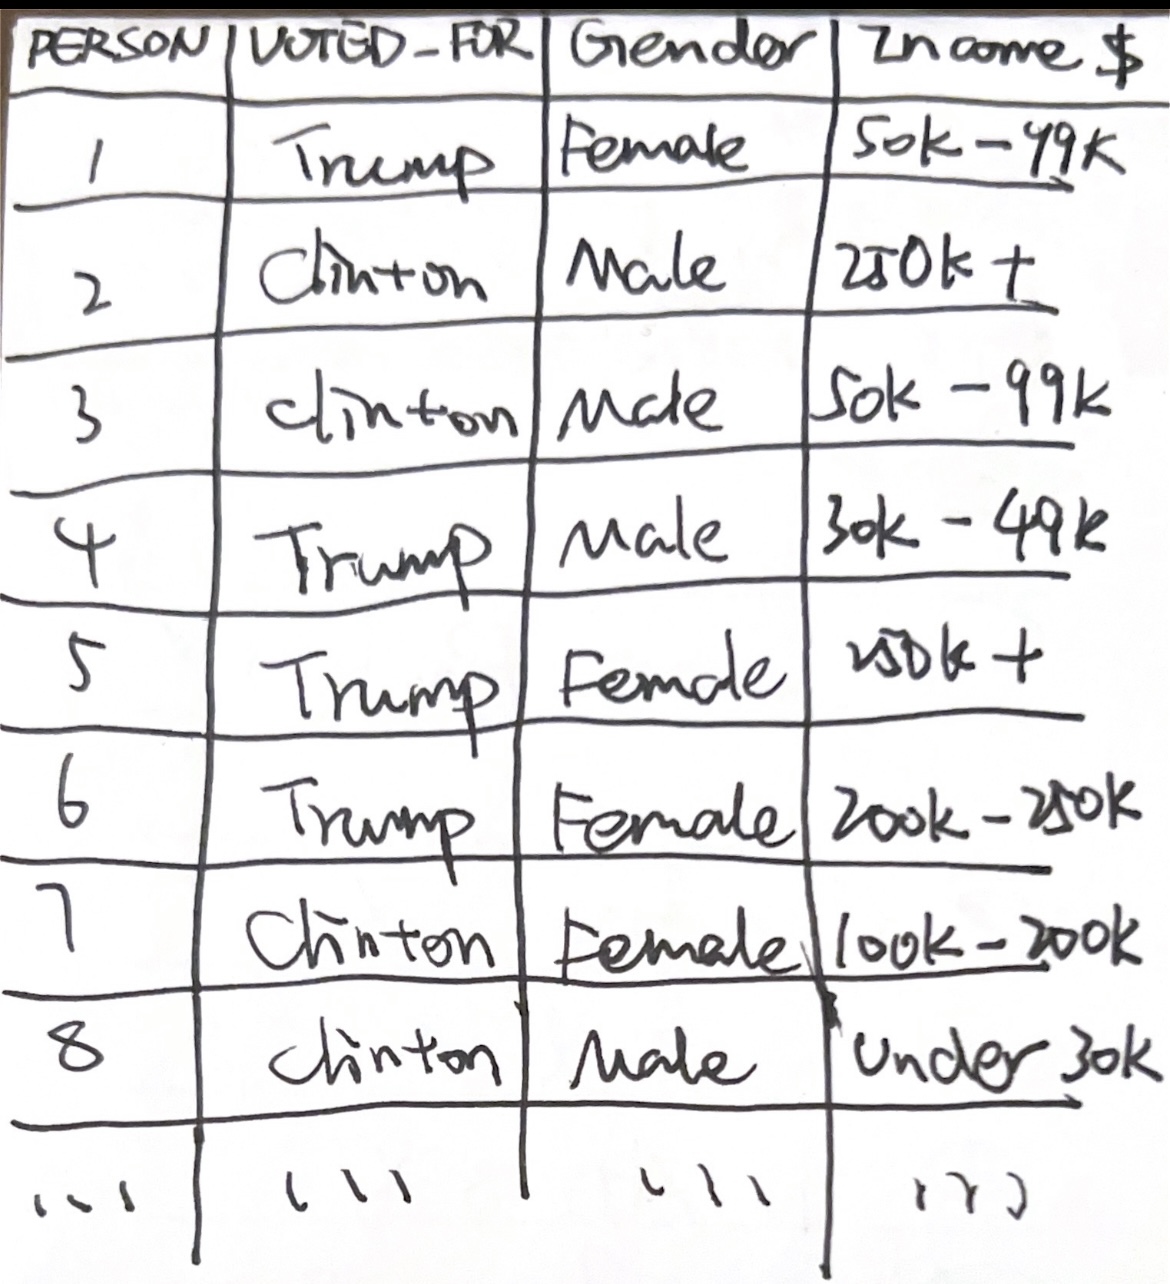 PERSON VOTED-FOR Gender Income $
1 Trump Female 50k-99k
2 Clinton Male 250k+
3 Clinton Male 50k-99k
4 Trump Male 30k-49k
5 Trump Female 250k+
6 Trump Female 200k-250k
7 Clinton Female 100k-200k
8 Clinton Male Under 30k
... ... ... ...